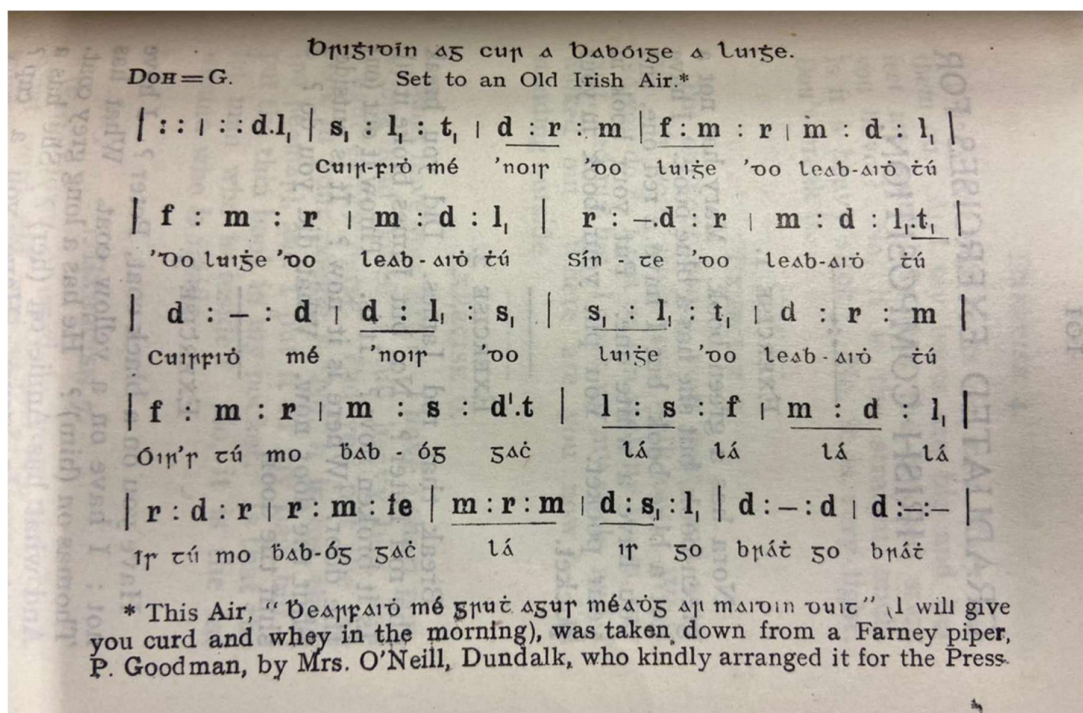 Briġidín ag cur a Babóige a Luiġe.
DOH = G. Set to an Old Irish Air.*
| : : | : : d.l₁ | s₁ : l₁ : t₁ | d : r : m | f : m : r | m : d : l₁ |
Cuir-fiḋ mé 'nois 'do luiġe 'do leab-aiḋ ṫú
| f : m : r | m : d : l₁ | r : –.d : r | m : d : l₁.t₁ |
'Do luiġe 'do leab-aiḋ ṫú Sín - te 'do leab-aiḋ ṫú
| d : – : d | d : l₁ : s₁ | s₁ : l₁ : t₁ | d : r : m |
Cuirfiḋ mé 'nois 'do luiġe 'do leab-aiḋ ṫú
| f : m : r | m : s : d'.t | l : s : f | m : d : l₁ |
Óir's tú mo ḃab - óg gaċ lá lá lá lá
| r : d : r | r : m : fe | m : r : m | d : s₁ : l₁ | d : – : d | d : – : – |
Is tú mo ḃab-óg gaċ lá is go bráṫ go bráṫ
* This Air, "Ḃearfaiḋ mé gruṫ agus méaḋg ar maidin duit" (I will give
you curd and whey in the morning), was taken down from a Farney piper,
P. Goodman, by Mrs. O'Neill, Dundalk, who kindly arranged it for the Press.